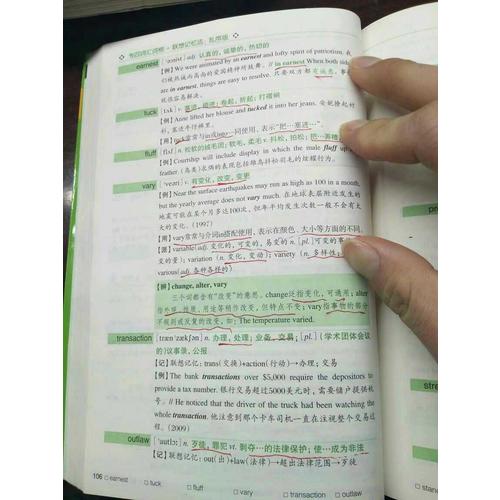 专四词汇词根+联想记忆法: 乱序版
earnest [ˈɜːnɪst] adj. 认真的, 诚挚的, 热切的
[例] We were animated by an earnest and lofty spirit of patriotism. 我
们被热诚而高尚的爱国精神所鼓舞。// in earnest When both sides
are in earnest, things are easy to resolve. 只要双方都有诚意, 事
就很容易解决。
tuck [tʌk] v. 塞进, 掖进; 卷起, 折起; 打褶裥
[例] Anne lifted her blouse and tucked it into her jeans. 安妮撩起衬
衫, 塞进牛仔裤里。
[用] tuck常常与in或into一同使用, 表示“把…塞进…”。
fluff [flʌf] n. 软的绒毛团; 软毛, 柔毛 v. 抖松, 拍松; 把…弄糟
[例] Courtship will include display in which the male fluff up
feather. (鸟类)求偶的表现包括雄鸟抖松羽毛的炫耀行为。
vary [ˈveəri] v. 有变化, 改变, 变更
[例] Near the surface earthquakes may run as high as 100 in a month,
but the yearly average does not vary much. 在地球表层附近发生的
地震可能在某个月多达100次, 但年平均发生次数一般不会有太
大的变化。(1997)
[用] vary常常与介词in搭配使用, 表示在颜色、大小等方面的不同。
[派] variable(adj. 变化的, 可变的, 易变的 n. [pl.] 可变的事
变的量); variation (n. 变化, 变动); variety (n. 多样性;
various(adj. 各种各样的)
[辨] change, alter, vary
三个词都含有“改变”的意思。change泛指变化, 可通用; alter
指外理、性质、用途等稍作改变, 但特点不变; vary指事物的部分
不规则或反复的改变, 如: The temperature varied.
transaction [trænˈzækʃən] n. 办理, 处理; 业务, 交易; [pl.] (学术团体会议
的)议事录, 公报
[记] 联想记忆: trans(交换)+action(行动)→办理; 交易
[例] The bank transactions over $5,000 require the depositors to
provide a tax number. 银行交易超过5000美元时, 需要储户提供税
号。// He noticed that the driver of the truck had been watching the
whole transaction. 他注意到那个卡车司机一直在注视整个交易过
程。(2009)
outlaw [ˈautlɔː] n. 歹徒, 罪犯 vt. 剥夺…的法律保护; 使…成为非法
[记] 联想记忆: out(出)+law(法律)→超出法律范围→歹徒
106 □ earnest □ tuck □ fluff □ vary □ transaction □ outlaw